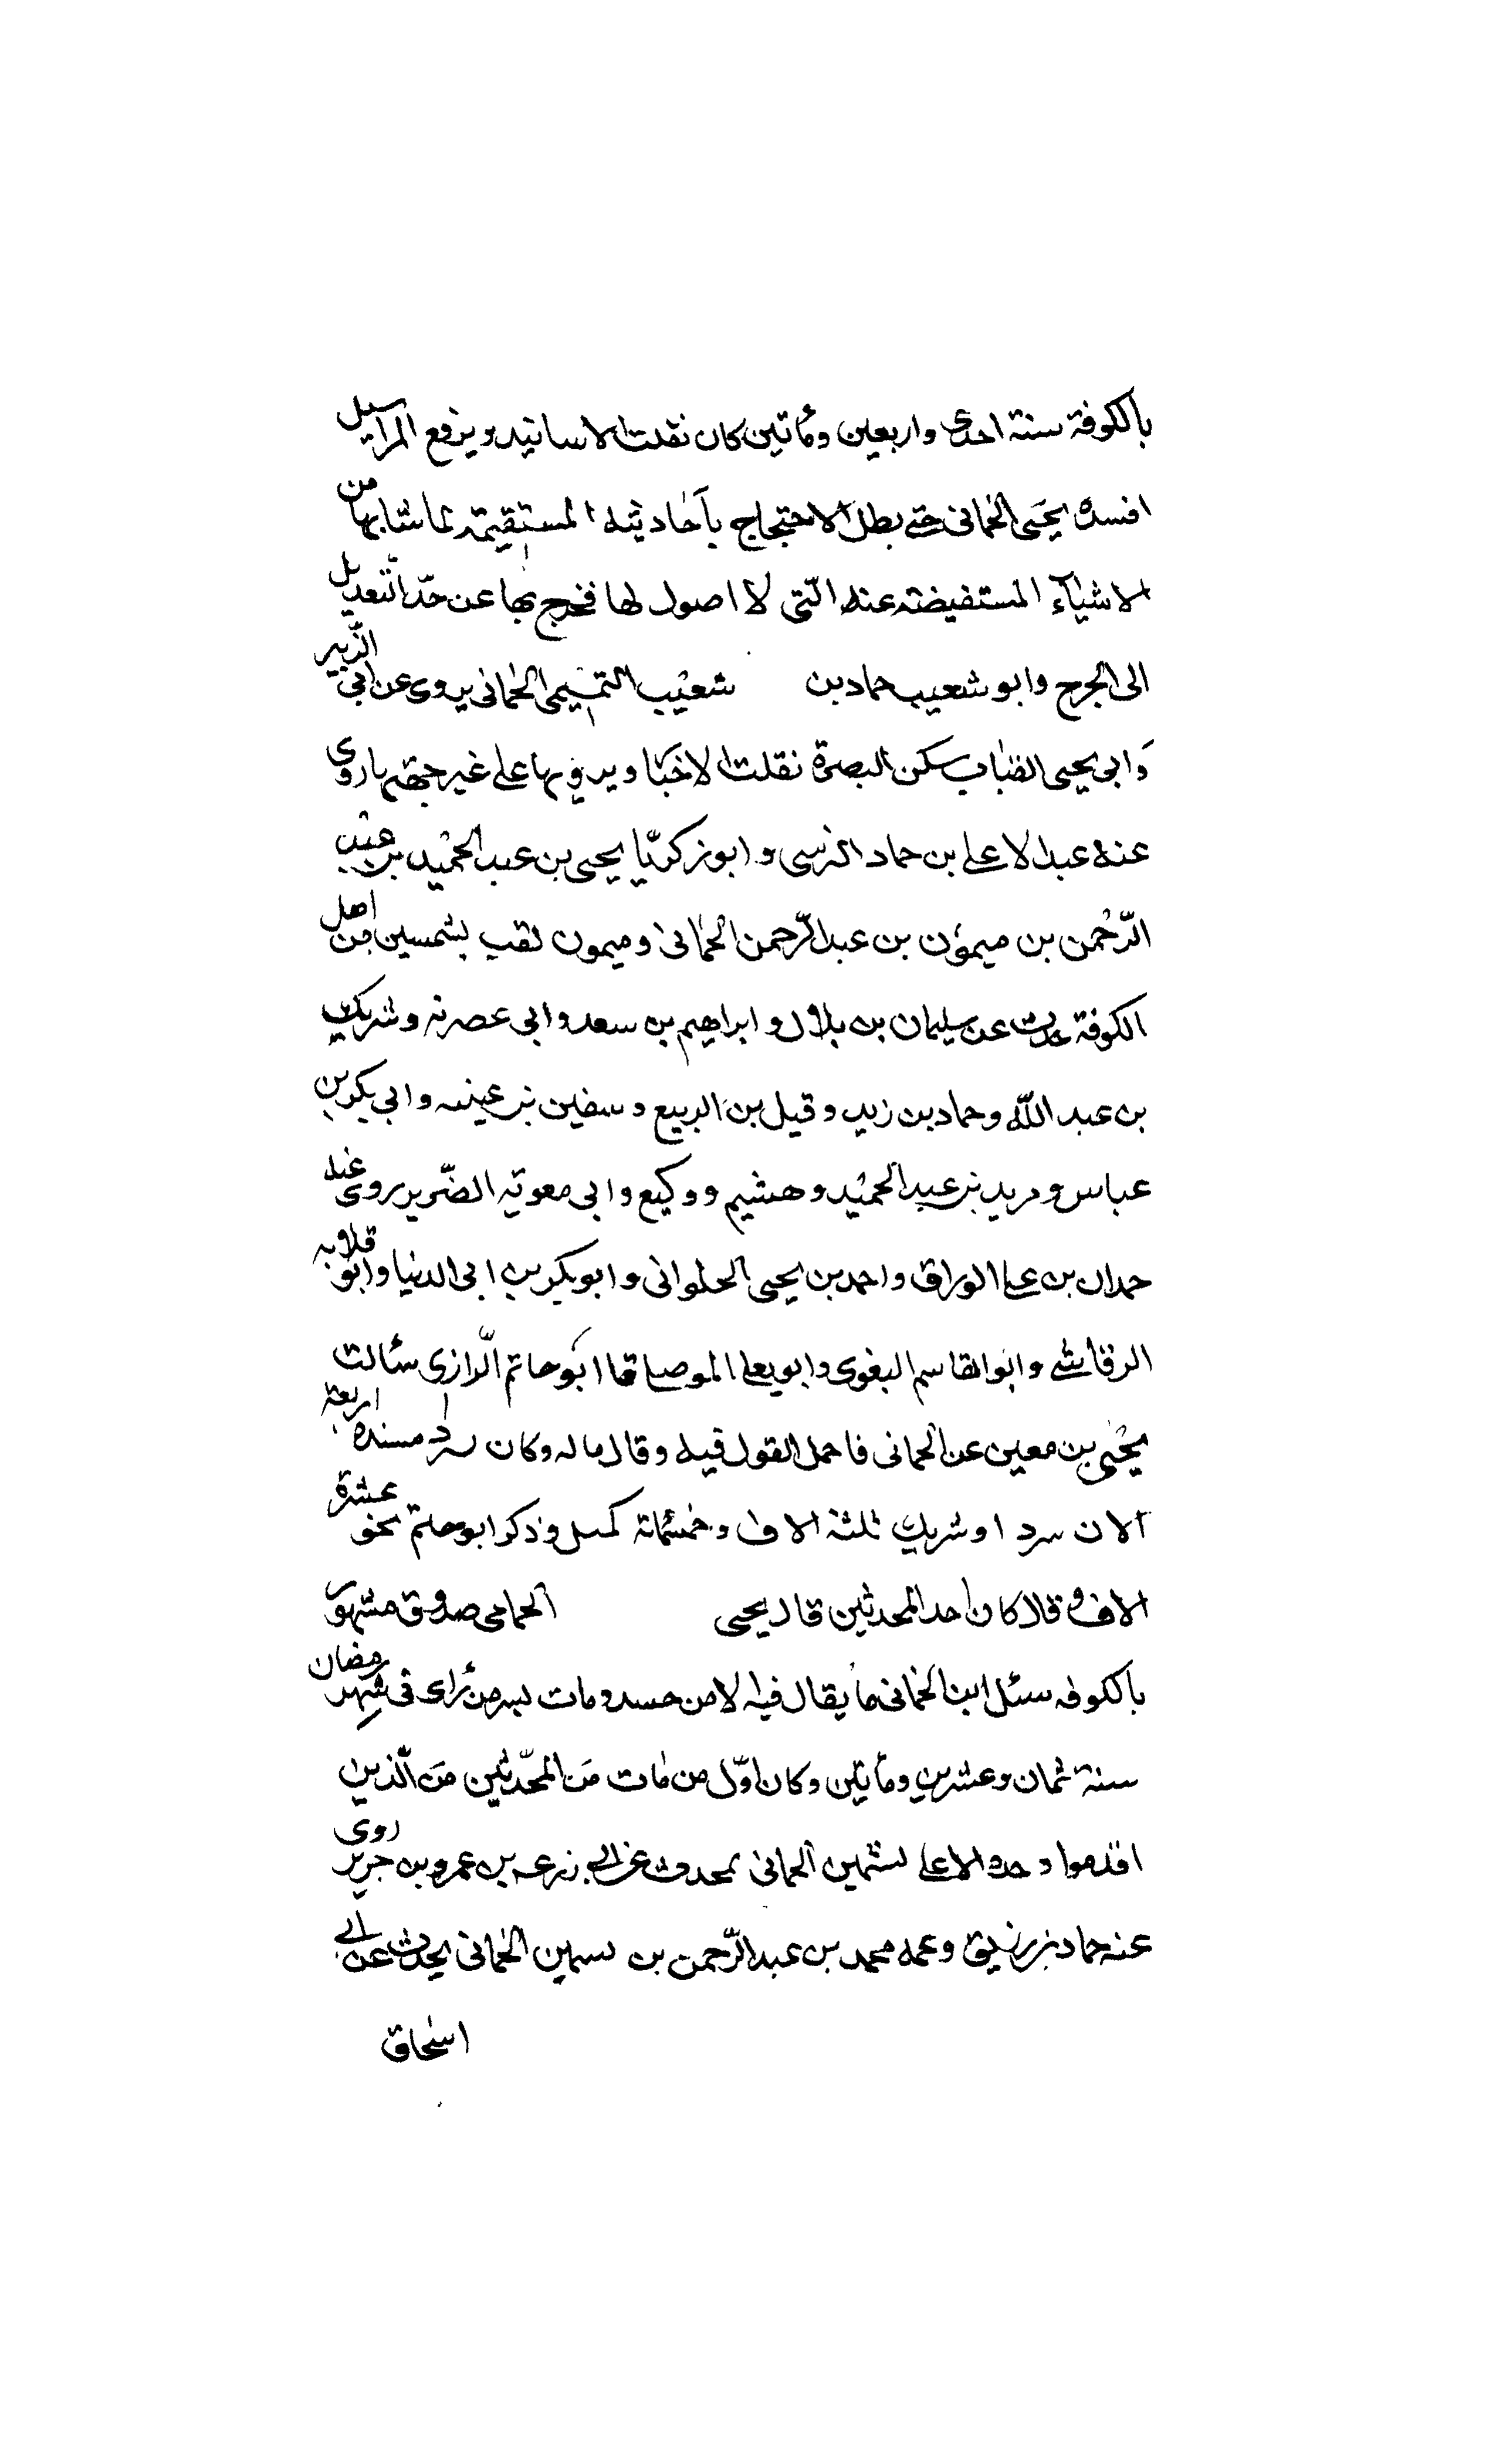 بالكوفة سنة احدى واربعين ومأتين كان نقلت الاسانيد ويرفع المراسيل
افسده يحيى الحمانى حتى بطل الاحتجاج بأحاديثه المستقيمة لما شابها من
الاشيآء المستفيضة عنه الّتى لا اصول لها فخرج بها عن حدّ التّعديل
الى الجرح وابو شعيب حماد بن شعيب التميمى الحمانى يروى عن ابى الزّبير
وَابى يحيى القتات سكن البصرة نقلت الاخبا ويرويها على غير جهتها روى
عنه عبد الاعلى بن حماد النرسى وابو زكريّا يحيى بن عبد الحميد بن عبد
الرّحمن بن ميمون بن عبد الرّحمن الحمانى وميمون لقب بشمسين من اهل
الكوفة حدث عن سليمان بن بلال وابراهيم بن سعد وابى عصرنه وشريك
بن عبد اللّه وحماد بن زيد وقيل بن الربيع وسفين بن عينه وابى بكر بن
عباس و مريد بن عبد الحميد وهشيم ووكيع وابى معوية الضّرير روى عنه
حمدان بن على الوراق واحمد بن يحيى الحلوانى وابو بكر بن ابى الدنيا وابو قلابه
الرقاشى وابو القاسم البغوى وابو يعلى الموصلى قال ابو حاتم الّرازى سئالت
يحيى بن معين عن الحمانى فاحمل القول فيه وقال ماله وكان يسرد مسنده اربعة
الاف سرد او شريك ثلثة الاف وخمسمائة كمثل وذكر ابو حاتم نحو عشرة
الاف وقال كان احد المحدثين قال يحيى الحمامى صدوق مشهور
بالكوفه سئل ابن الحمانى ما يقال فيه لا من حسد ومات بسر من رأى فى شهر رمضان
سنة ثمان وعشرين ومأتين وكان اوّل من مات مَن المحدّثين مَن الّذين
اقدموا وجده الاعلى بشمين الحمانى يحدث عن ابى زرعه بن عمرو بن جرير روى
عنه حماد بن زيق وعمه محمد بن عبد الرّحمن بن بسمين الحمانى يحدث عن ابى
اسحاق